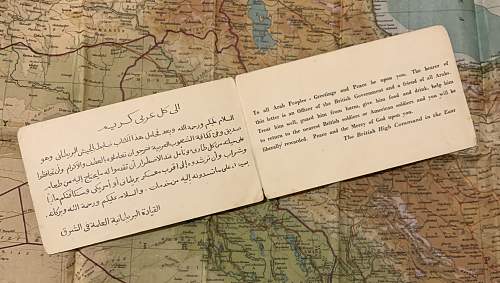 الى كل عربي كريم
السلام عليكم ورحمة الله وبعد فحامل هذا الكتاب ضابط بالجيش البريطاني وهو
صديق وفي لكافة الشعوب العربية فنرجو أن تعاملوه بالعطف والإكرام وأن تحافظوا
على حياته من كل طارئ ونأمل عند الاضطرار أن تقدموا له ما يحتاج إليه من طعام
وشراب وأن ترشدوه إلى أقرب معسكر بريطاني أو أمريكي وسنكافئكم مالياً
بسخاء على ما تسدونه إليه من خدمات والسلام عليكم ورحمة الله وبركاته
القيادة البريطانية العامة في الشرق
To all Arab Peoples - Greetings and Peace be upon you. The bearer of
this letter is an Officer of the British Government and a friend of all Arabs.
Treat him well, guard him from harm, give him food and drink, help him
to return to the nearest British soldiers or American soldiers and you will be
liberally rewarded. Peace and the Mercy of God upon you.
The British High Command in the East